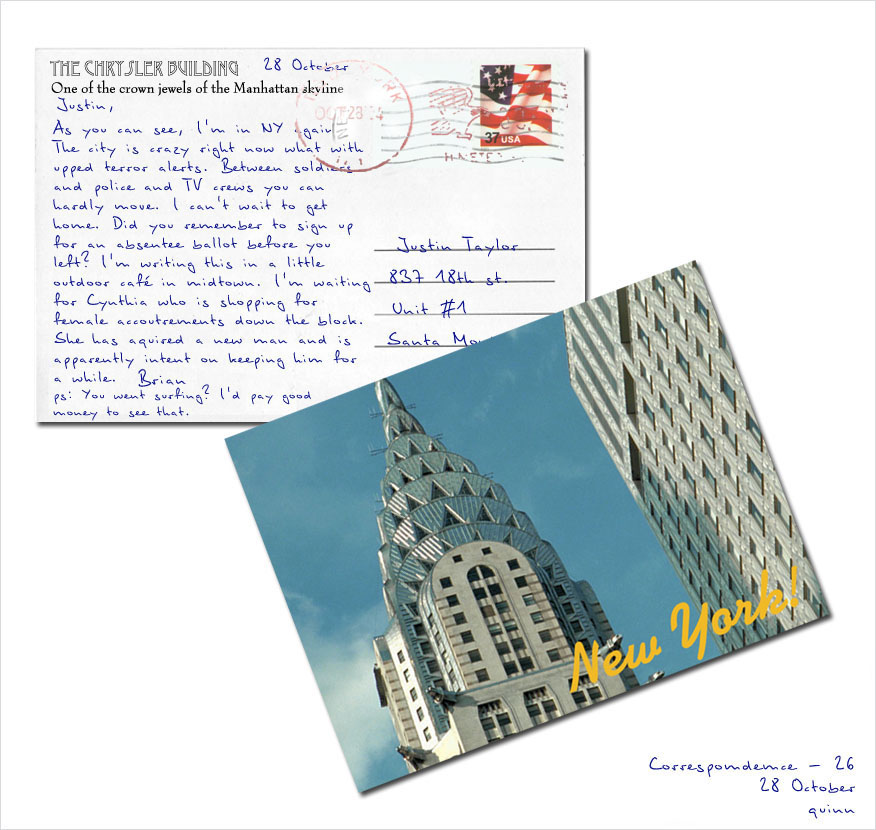 THE CHRYSLER BUILDING
28 October
One of the crown jewels of the Manhattan skyline
Justin,
As you can see, I'm in NY again
The city is crazy right now what with
upped terror alerts. Between soldiers
and police and TV crews you can
hardly move. I can't wait to get
home. Did you remember to sign up
for an absentee ballot before you
left? I'm writing this in a little
outdoor café in midtown. I'm waiting
for Cynthia who is shopping for
female accoutrements down the block.
She has aquired a new man and is
apparently intent on keeping him for
a while. Brian
ps: You went surfing? I'd pay good
money to see that.
OCT 28
37 USA
Justin Taylor
837 18th st.
Unit #1
Santa
New York!
Correspondence – 26
28 October
quinn